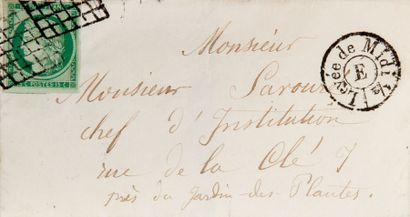 Monsieur
Monsieur Savouré
chef d'Institution
rue de la Clé 7
près du Jardin-des-Plantes.
15 C. POSTES 15 C.
Levée de Midi ½
E